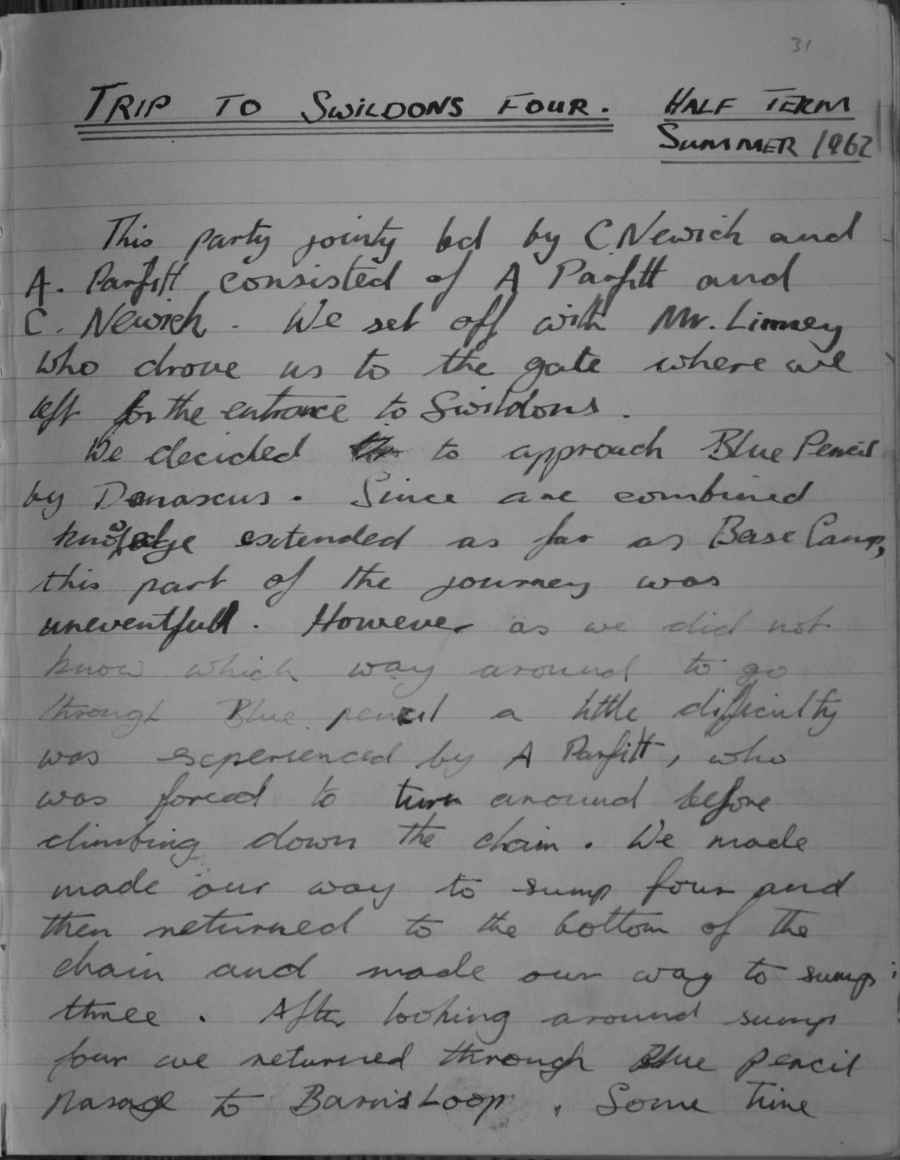 31
TRIP TO SWILDONS FOUR. HALF TERM
SUMMER 1962
This party jointy led by C Newich and
A. Parfitt consisted of A Parfitt and
C. Newich. We set off with Mr. Linney
who drove us to the gate where we
left for the entrance to Swildons.
We decided to approach Blue Pencil
by Donascus. Since are combined
extended as far as Base Camp,
this part of the journey was
uneventfull. However as we did not
know which way around to go
through Blue pencil a little difficulty
was experienced by A Parfitt, who
was forced to turn around before
climbing down the chain. We made
made our way to sump four and
then returned to the bottom of the
chain and made our way to sump
three. After looking around sump
four we returned through Blue pencil
to Barnes Loop. Some time